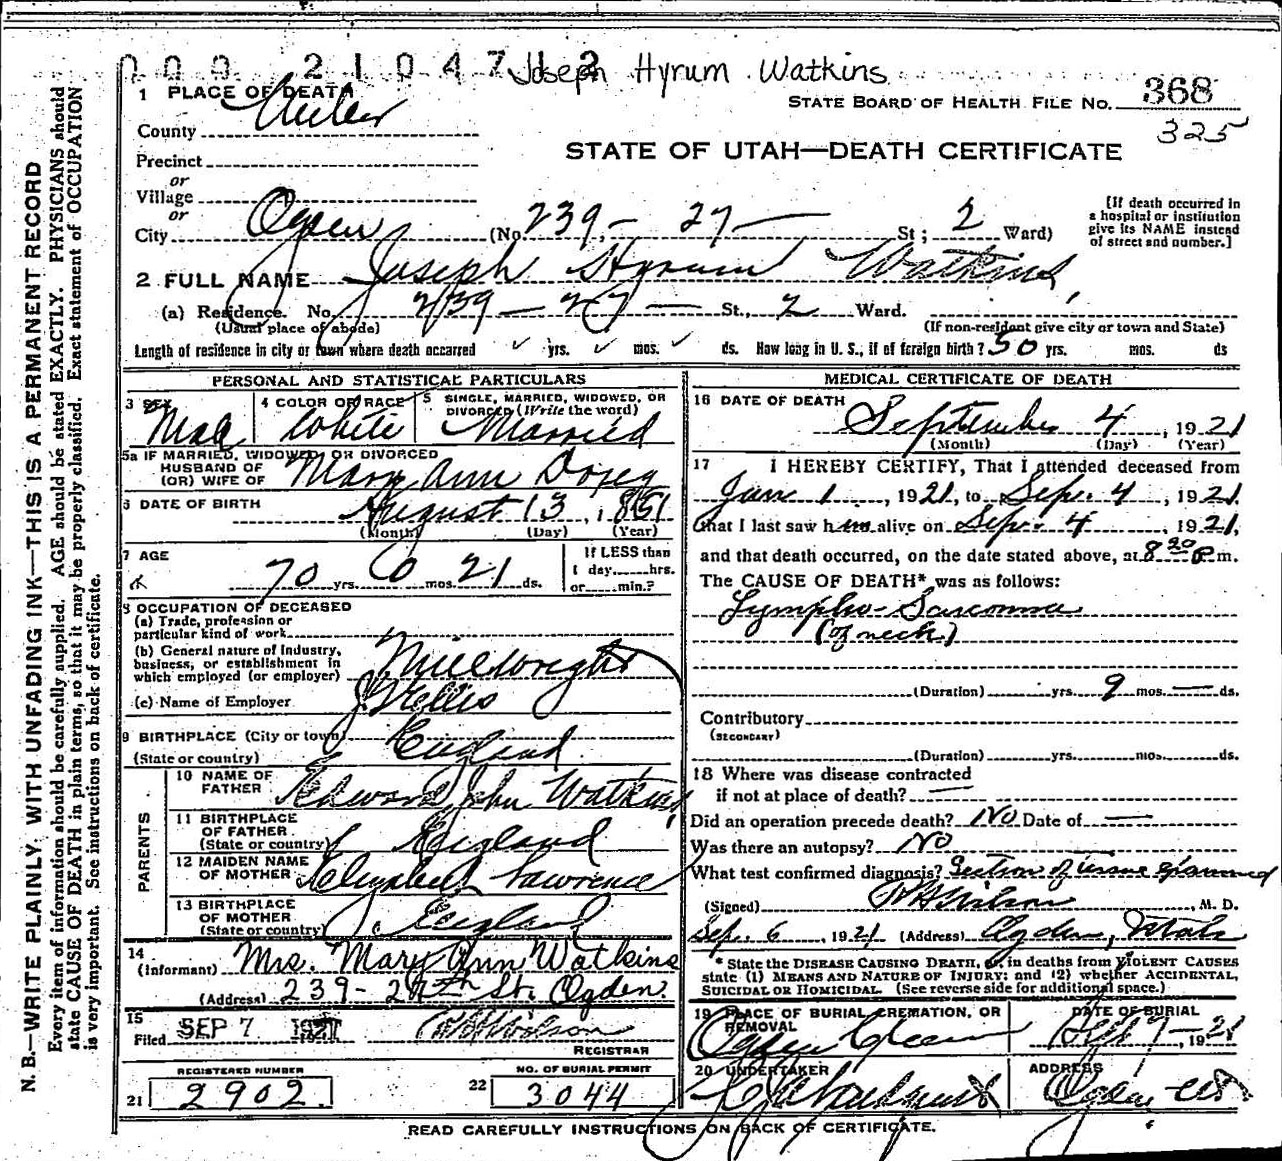 000 21047 Joseph Hyrum Watkins
1 PLACE OF DEATH
STATE BOARD OF HEALTH FILE NO. 368
325
County Weber
STATE OF UTAH—DEATH CERTIFICATE
Precinct
or
Village
or
City Ogden (No. 239 - 27 - St; 2 Ward)
[If death occurred in a hospital or institution give its NAME instead of street and number.]
2 FULL NAME Joseph Hyrum Watkins
(a) Residence. No. 239 - 27 - St., 2 Ward.
(Usual place of abode) (If non-resident give city or town and State)
Length of residence in city or town where death occurred yrs. mos. ds. How long in U. S., if of foreign birth? 50 yrs. mos. ds
PERSONAL AND STATISTICAL PARTICULARS
3 SEX Male
4 COLOR OR RACE White
5 SINGLE, MARRIED, WIDOWED, OR DIVORCED (Write the word) Married
5a IF MARRIED, WIDOWED, OR DIVORCED
HUSBAND OF
(OR) WIFE OF Mary Ann
6 DATE OF BIRTH August 13, 1851
(Month) (Day) (Year)
7 AGE 70 yrs. 0 mos. 21 ds.
If LESS than 1 day......hrs. or......min.?
8 OCCUPATION OF DECEASED
(a) Trade, profession or particular kind of work
(b) General nature of industry, business, or establishment in which employed (or employer) Millwright
(c) Name of Employer
9 BIRTHPLACE (City or town)
(State or country) England
PARENTS
10 NAME OF FATHER Edward John Watkins
11 BIRTHPLACE OF FATHER (State or country) England
12 MAIDEN NAME OF MOTHER Elizabeth Lawrence
13 BIRTHPLACE OF MOTHER (State or country) England
14 (Informant) Mrs. Mary Ann Watkins
(Address) 239 - 27th St. Ogden.
15 Filed SEP 7 1921
REGISTRAR
REGISTERED NUMBER
21 2902
NO. OF BURIAL PERMIT
22 3044
MEDICAL CERTIFICATE OF DEATH
16 DATE OF DEATH September 4, 1921
(Month) (Day) (Year)
17 I HEREBY CERTIFY, That I attended deceased from
Jun 1, 1921, to Sep. 4, 1921,
that I last saw him alive on Sep. 4, 1921,
and that death occurred, on the date stated above, at 8 20 P. m.
The CAUSE OF DEATH* was as follows:
Lympho-Sarcoma
(of neck)
(Duration) yrs. 9 mos. — ds.
Contributory
(SECONDARY)
(Duration) yrs. mos. ds.
18 Where was disease contracted
if not at place of death? —
Did an operation precede death? No Date of —
Was there an autopsy? No
What test confirmed diagnosis? Section of tissue examined
(Signed) Wilson, M. D.
Sep. 6, 1921 (Address) Ogden, Utah
* State the DISEASE CAUSING DEATH, or, in deaths from VIOLENT CAUSES
state (1) MEANS AND NATURE OF INJURY; and (2) whether ACCIDENTAL,
SUICIDAL OR HOMICIDAL. (See reverse side for additional space.)
19 PLACE OF BURIAL, CREMATION, OR REMOVAL Ogden
DATE OF BURIAL Sept 9 - 1921
20 UNDERTAKER
ADDRESS Ogden
READ CAREFULLY INSTRUCTIONS ON BACK OF CERTIFICATE.
N. B.—WRITE PLAINLY, WITH UNFADING INK—THIS IS A PERMANENT RECORD
Every item of information should be carefully supplied. AGE should be stated EXACTLY. PHYSICIANS should
state CAUSE OF DEATH in plain terms, so that it may be properly classified. Exact statement of OCCUPATION
is very important. See instructions on back of certificate.